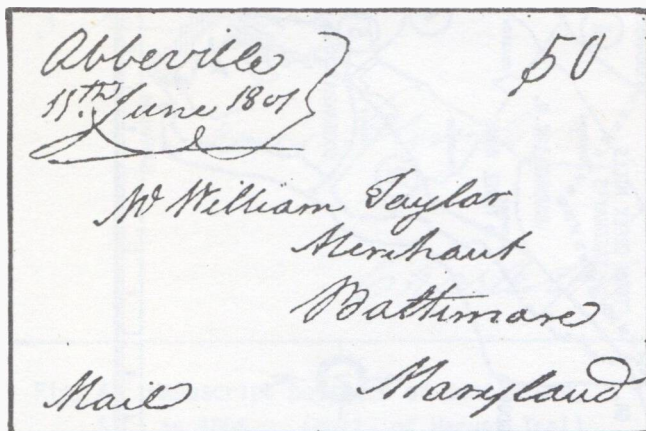 Abbeville
11th June 1801
50
Mr William Taylor
Merchant
Baltimore
Mail
Maryland